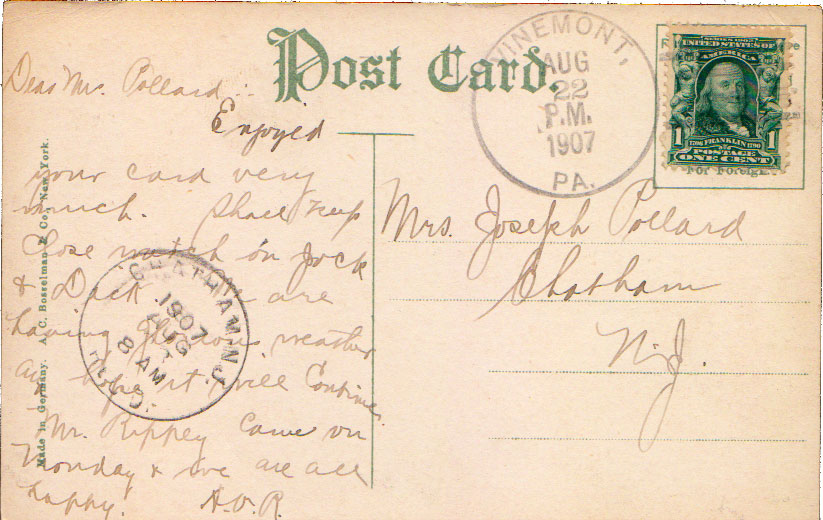 Post Card.
VINEMONT,
AUG
22
P.M.
1907
PA.
SERIES 1902
UNITED STATES OF
AMERICA
1 1
1706 FRANKLIN 1790
POSTAGE
ONE CENT
For Foreign
Dear Mrs. Pollard:
Enjoyed
your card very
much. Shall keep
Close watch on Jack
& Dick are
having glorious weather
and hope it will Continue.
Mr. Rippey Came on
Monday & we are all
happy! A.O.R.
Mrs. Joseph Pollard
Chatham
N.J.
CHATHAM, N.J.
1907
AUG
8 AM
REC'D.
Made in Germany. A.C. Bosselman & Co., New York.